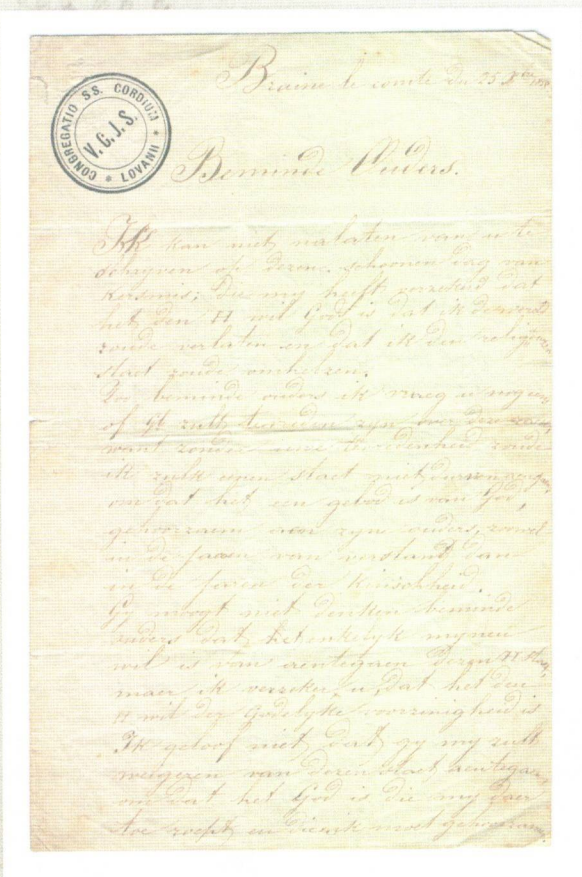 Braine le comte du 25 Xbre
CONGREGATIO SS. CORDIUM * LOVANII *
V. C. J. S.
Beminde Ouders.
Ik kan niet nalaten van u te
schryven op dezen schoonen dag van
Kersmis; die my heeft verzekerd dat
het den H wil God is dat ik de wereld
zoude verlaten en dat ik den religieuzen
staet zoude omhelzen.
beminde ouders ik vraeg u nog eens
of gy zult tevreden zyn over deze
want zonder uwe tevredenheid zoude
ik zulk eenen staet niet durven
om dat het een gebod is van God,
gehoorzaem aen zyn ouders, zoowel
in de jaeren van verstand dan
in de jaeren der kinschheid.
Gy moogt niet denken beminde
ouders dat het enkelyk mynen
wil is van aentegaen dezen H Staet,
maer ik verzeker u, dat het den
H wil der Godelyke voorzienigheid is
Ik geloof niet, dat gy my zult
weigeren van dezen staet aentegaen
om dat het God is die my daer
toe roept en die ik moet gehoorzamen